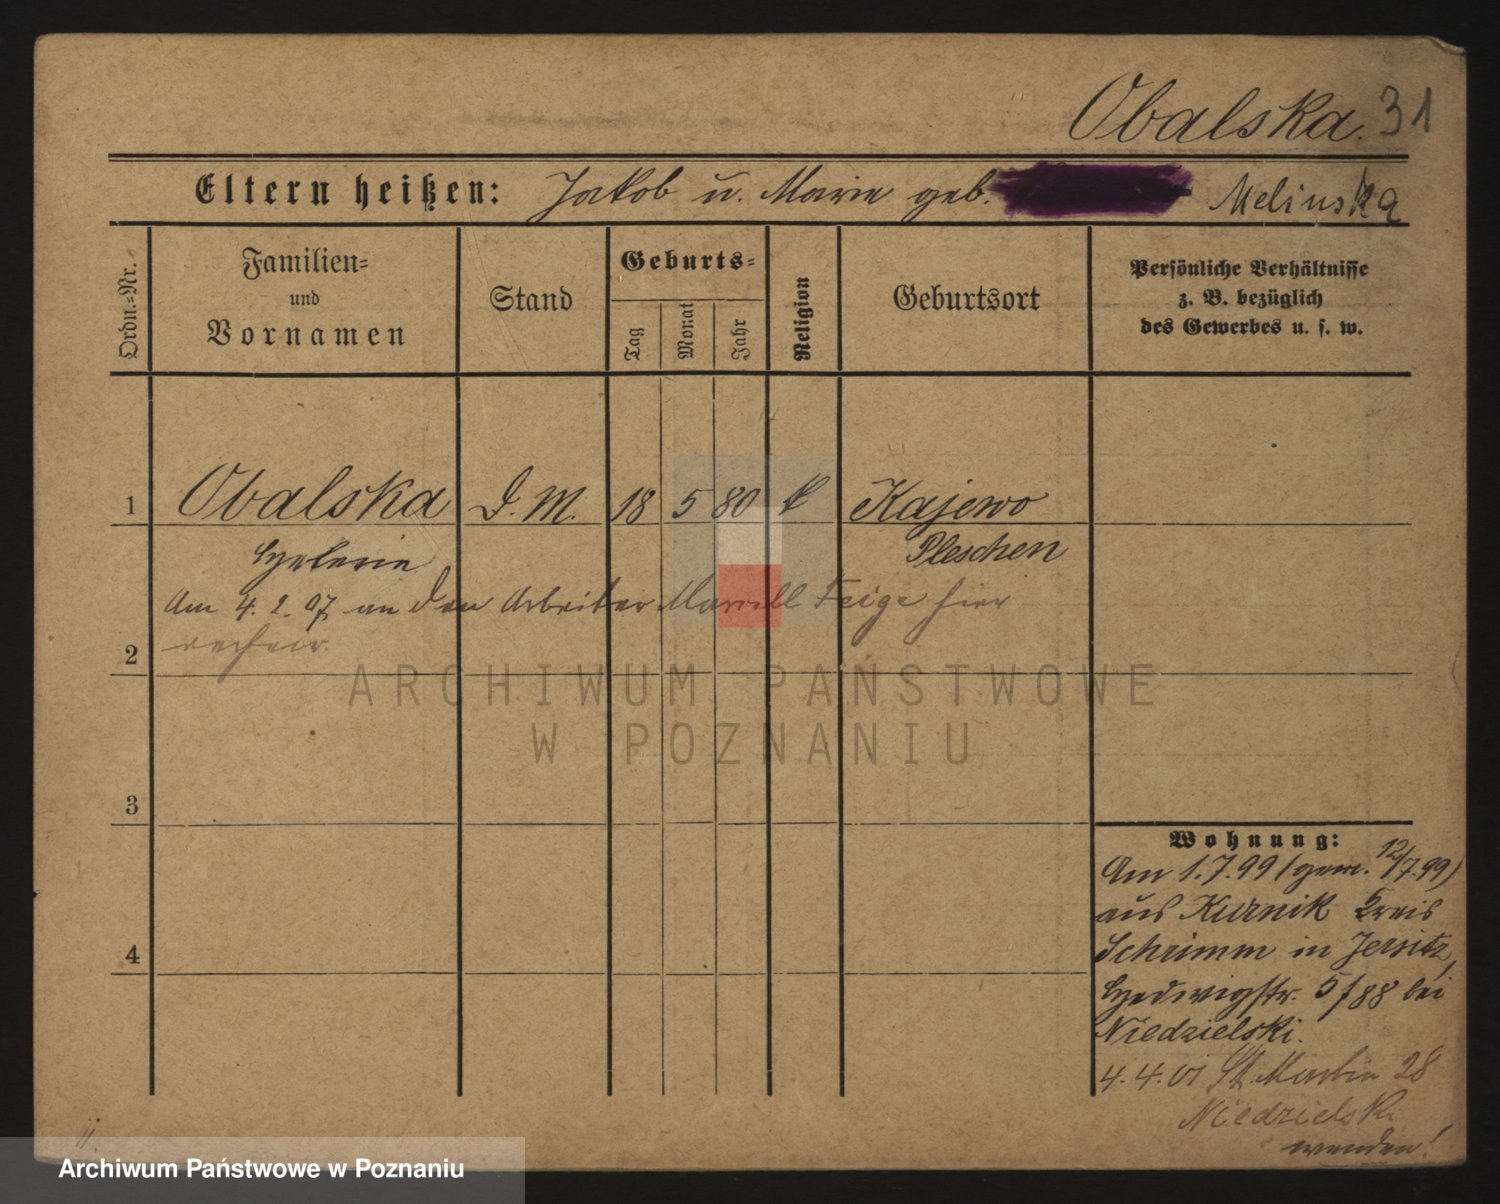 Obalska. 31
Eltern heißen: Jakob u. Marie geb. Melinska
Ordn.=Nr.
Familien=
und
Vornamen
Stand
Geburts=
Tag
Monat
Jahr
Religion
Geburtsort
Persönliche Verhältnisse
z. B. bezüglich
des Gewerbes u. s. w.
1 Obalska D. M. 18 5 80 k Kajewo
Helene Pleschen
Am 4. 2. 07 an den Arbeiter Marcell Feige hier
2
3
4
Wohnung:
Am 1.7.99 (gem. 12/7.99)
aus Kurnik Kreis
Schrimm in Jersitz,
Hedwigstr. 5/88 bei
Niedzielski.
4. 4. 01 St. Martin 28
Niedzielski
wenden!
ARCHIWUM PAŃSTWOWE
W POZNANIU
Archiwum Państwowe w Poznaniu